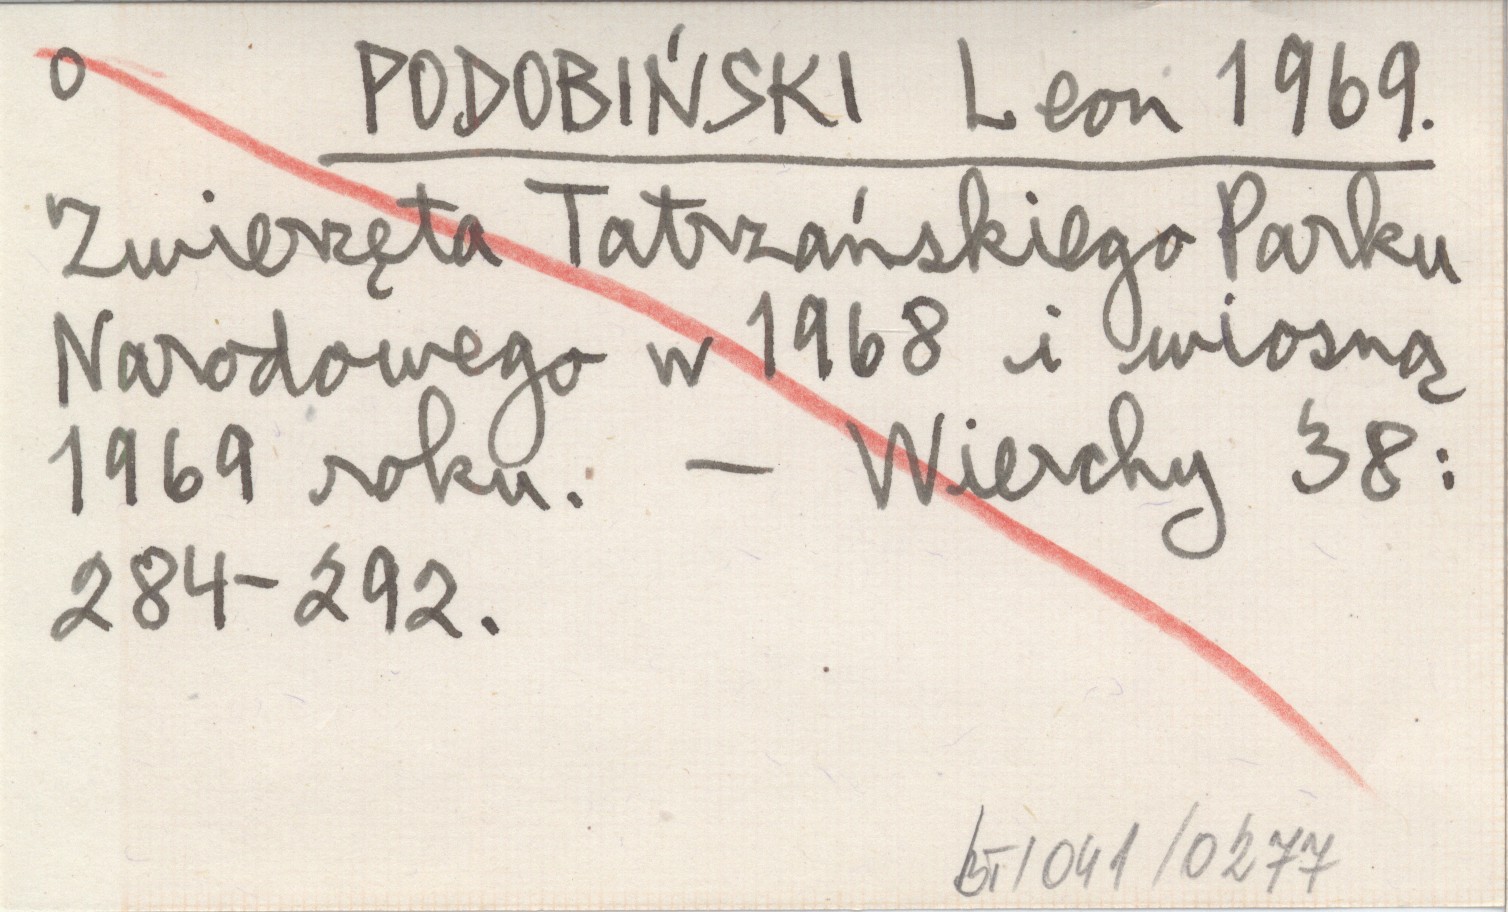 o PODOBIŃSKI Leon 1969.
Zwierzęta Tatrzańskiego Parku
Narodowego w 1968 i wiosną
1969 roku. — Wierchy 38:
284-292.
BT/041/0277